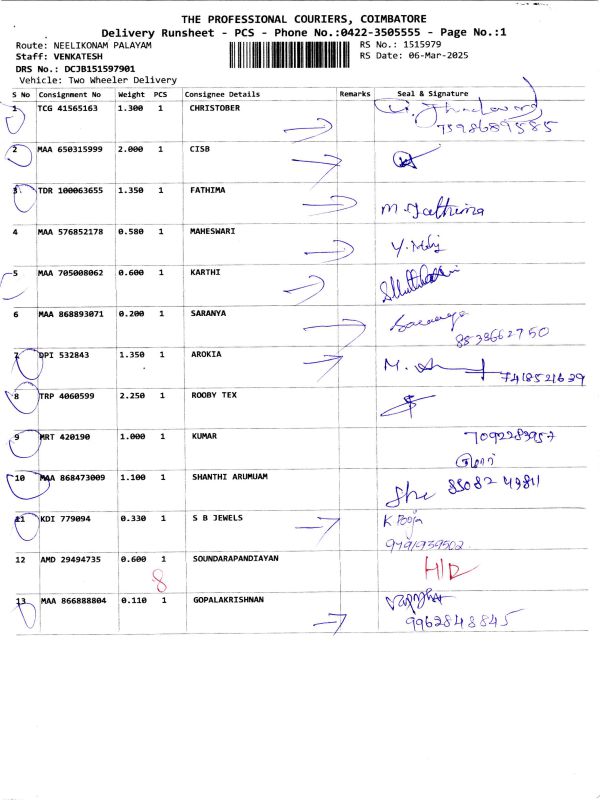 THE PROFESSIONAL COURIERS, COIMBATORE
Delivery Runsheet - PCS - Phone No.:0422-3505555 - Page No.:1
Route: NEELIKONAM PALAYAM RS No.: 1515979
Staff: VENKATESH RS Date: 06-Mar-2025
DRS No.: DCJB151597901
Vehicle: Two Wheeler Delivery
S No Consignment No Weight PCS Consignee Details Remarks Seal & Signature
1 TCG 41565163 1.300 1 CHRISTOBER
7598689585
2 MAA 650315999 2.000 1 CISB
3 TDR 100063655 1.350 1 FATHIMA
M. Fathima
4 MAA 576852178 0.580 1 MAHESWARI
5 MAA 705008062 0.600 1 KARTHI
6 MAA 868893071 0.200 1 SARANYA
Saranya
8838662750
7 DPI 532843 1.350 1 AROKIA
7418521639
8 TRP 4060599 2.250 1 ROOBY TEX
9 MRT 420190 1.000 1 KUMAR 7092283957
10 MAA 868473009 1.100 1 SHANTHI ARUMUAM
88082 49811
11 KDI 779094 0.330 1 S B JEWELS K Pooja
9791939502
12 AMD 29494735 0.600 1 SOUNDARAPANDIAYAN H/D
8
13 MAA 866888804 0.110 1 GOPALAKRISHNAN
9962848845